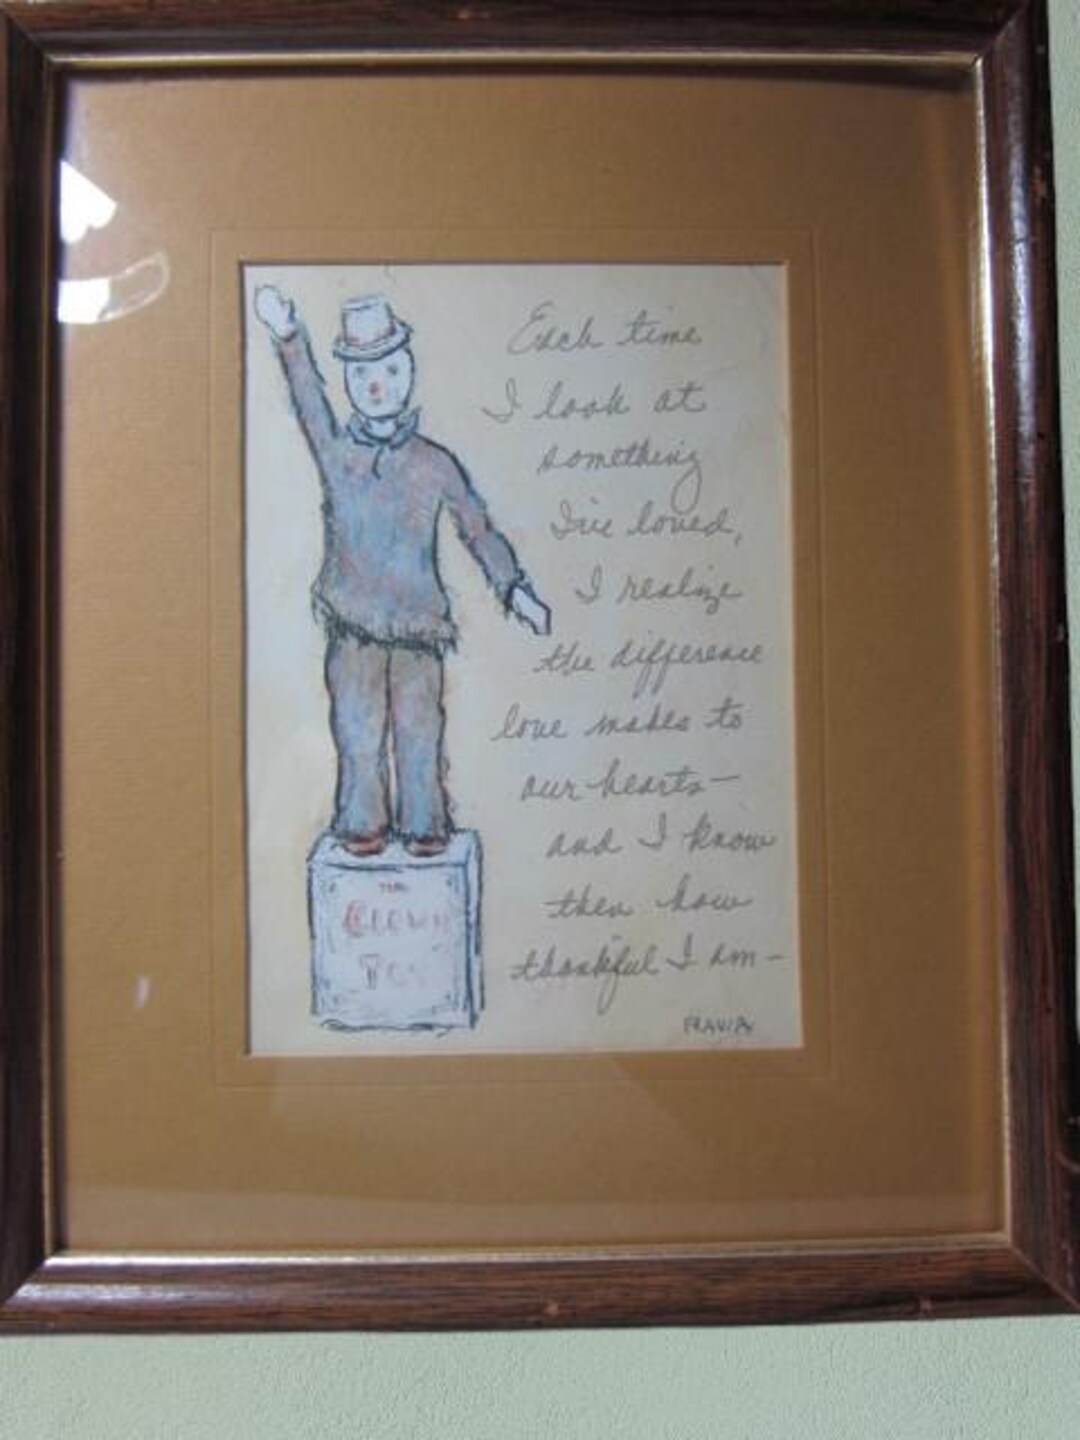 Each time
I look at
something
I've loved,
I realize
the difference
love makes to
our hearts—
and I know
then how
thankful I am—
FLAVIA
THE
CLOWN